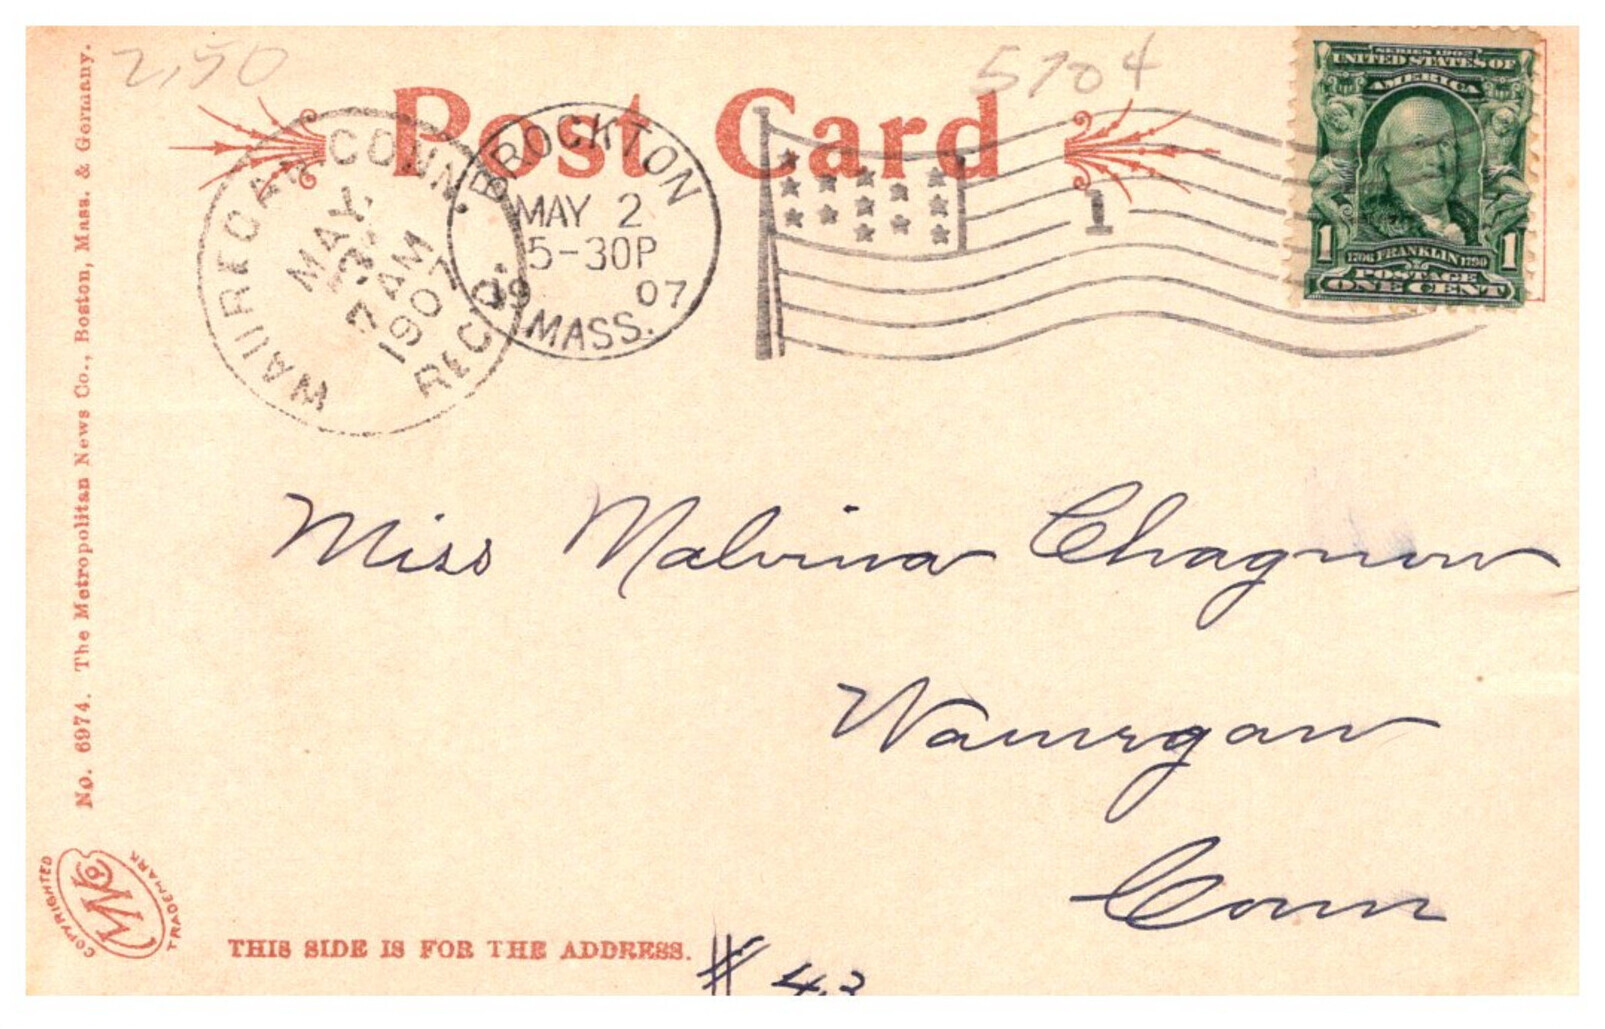 2,50
5704
Post Card
WAUREGAN CONN.
MAY.
3
7 AM
1907
REC'D.
BROCKTON
MAY 2
5-30P
19 07
MASS.
1
SERIES 1902
UNITED STATES OF
AMERICA
1706 FRANKLIN 1790
1 1
POSTAGE
ONE CENT
No. 6974. The Metropolitan News Co., Boston, Mass. & Germany.
Miss Malvina Chagnon
Wauregan
Conn
COPYRIGHTED
TRADEMARK
THIS SIDE IS FOR THE ADDRESS.
# 43